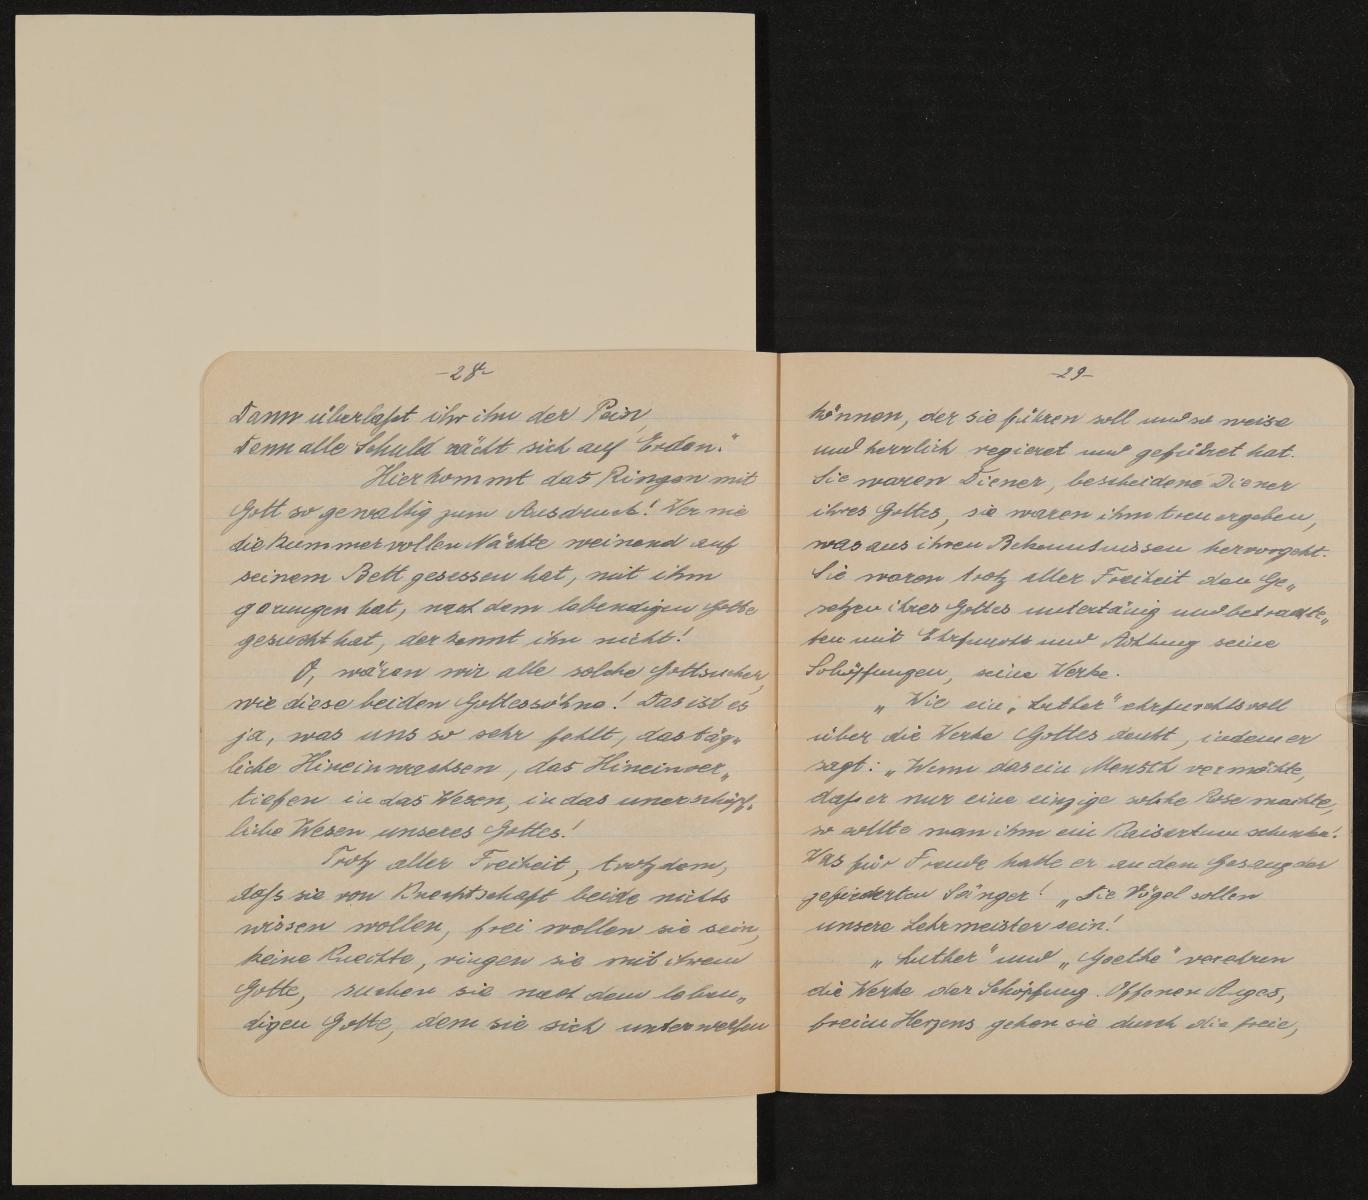 -28-
Dann überlaßt ihr ihn der Pein,
Denn alle Schuld rächt sich auf Erden."
Hier kommt das Ringen mit
Gott so gewaltig zum Ausdruck! Wer nie
die kummervollen Nächte weinend auf
seinem Bett gesessen hat, mit ihm
gerungen hat, nach dem lebendigen Gotte
gesucht hat, der kennt ihn nicht!
O, wären wir alle solche Gottsucher,
wie diese beiden Gottessöhne! Das ist es
ja, was uns so sehr fehlt, das täg„
liche Hineinwachsen, das Hineinver„
tiefen in das Wesen, in das unerschöpf„
liche Wesen unseres Gottes!
Trotz aller Freiheit, trotzdem,
daß sie von Knechtschaft beide nichts
wissen wollen, frei wollen sie sein,
keine Knechte, ringen sie mit ihrem
Gotte, suchen sie nach dem leben„
digen Gotte, dem sie sich unterwerfen
-29-
können, der sie führen soll und so weise
und herrlich regieret und geführet hat.
Sie waren Diener, bescheidene Diener
ihres Gottes, sie waren ihm treu ergeben,
was aus ihren Bekenntnissen hervorgeht.
Sie waren trotz aller Freiheit den Ge„
setzen ihres Gottes untertänig und betrachte„
ten mit Ehrfurcht und Achtung seine
Schöpfungen, seine Werke.
„Wie ein „Luther" ehrfurchtsvoll
über die Werke Gottes denkt, indem er
sagt: „Wenn das ein Mensch vermöchte,
daß er nur eine einzige solche Rose machte,
so sollte man ihm ein Kaisertum schenken!
Was für Freude hatte er an dem Gesang der
gefiederten Sänger! „Die Vögel sollen
unsere Lehrmeister sein!
„Luther" und „Goethe" verehren
die Werke der Schöpfung. Offenen Auges,
freien Herzens gehen sie durch die freie,